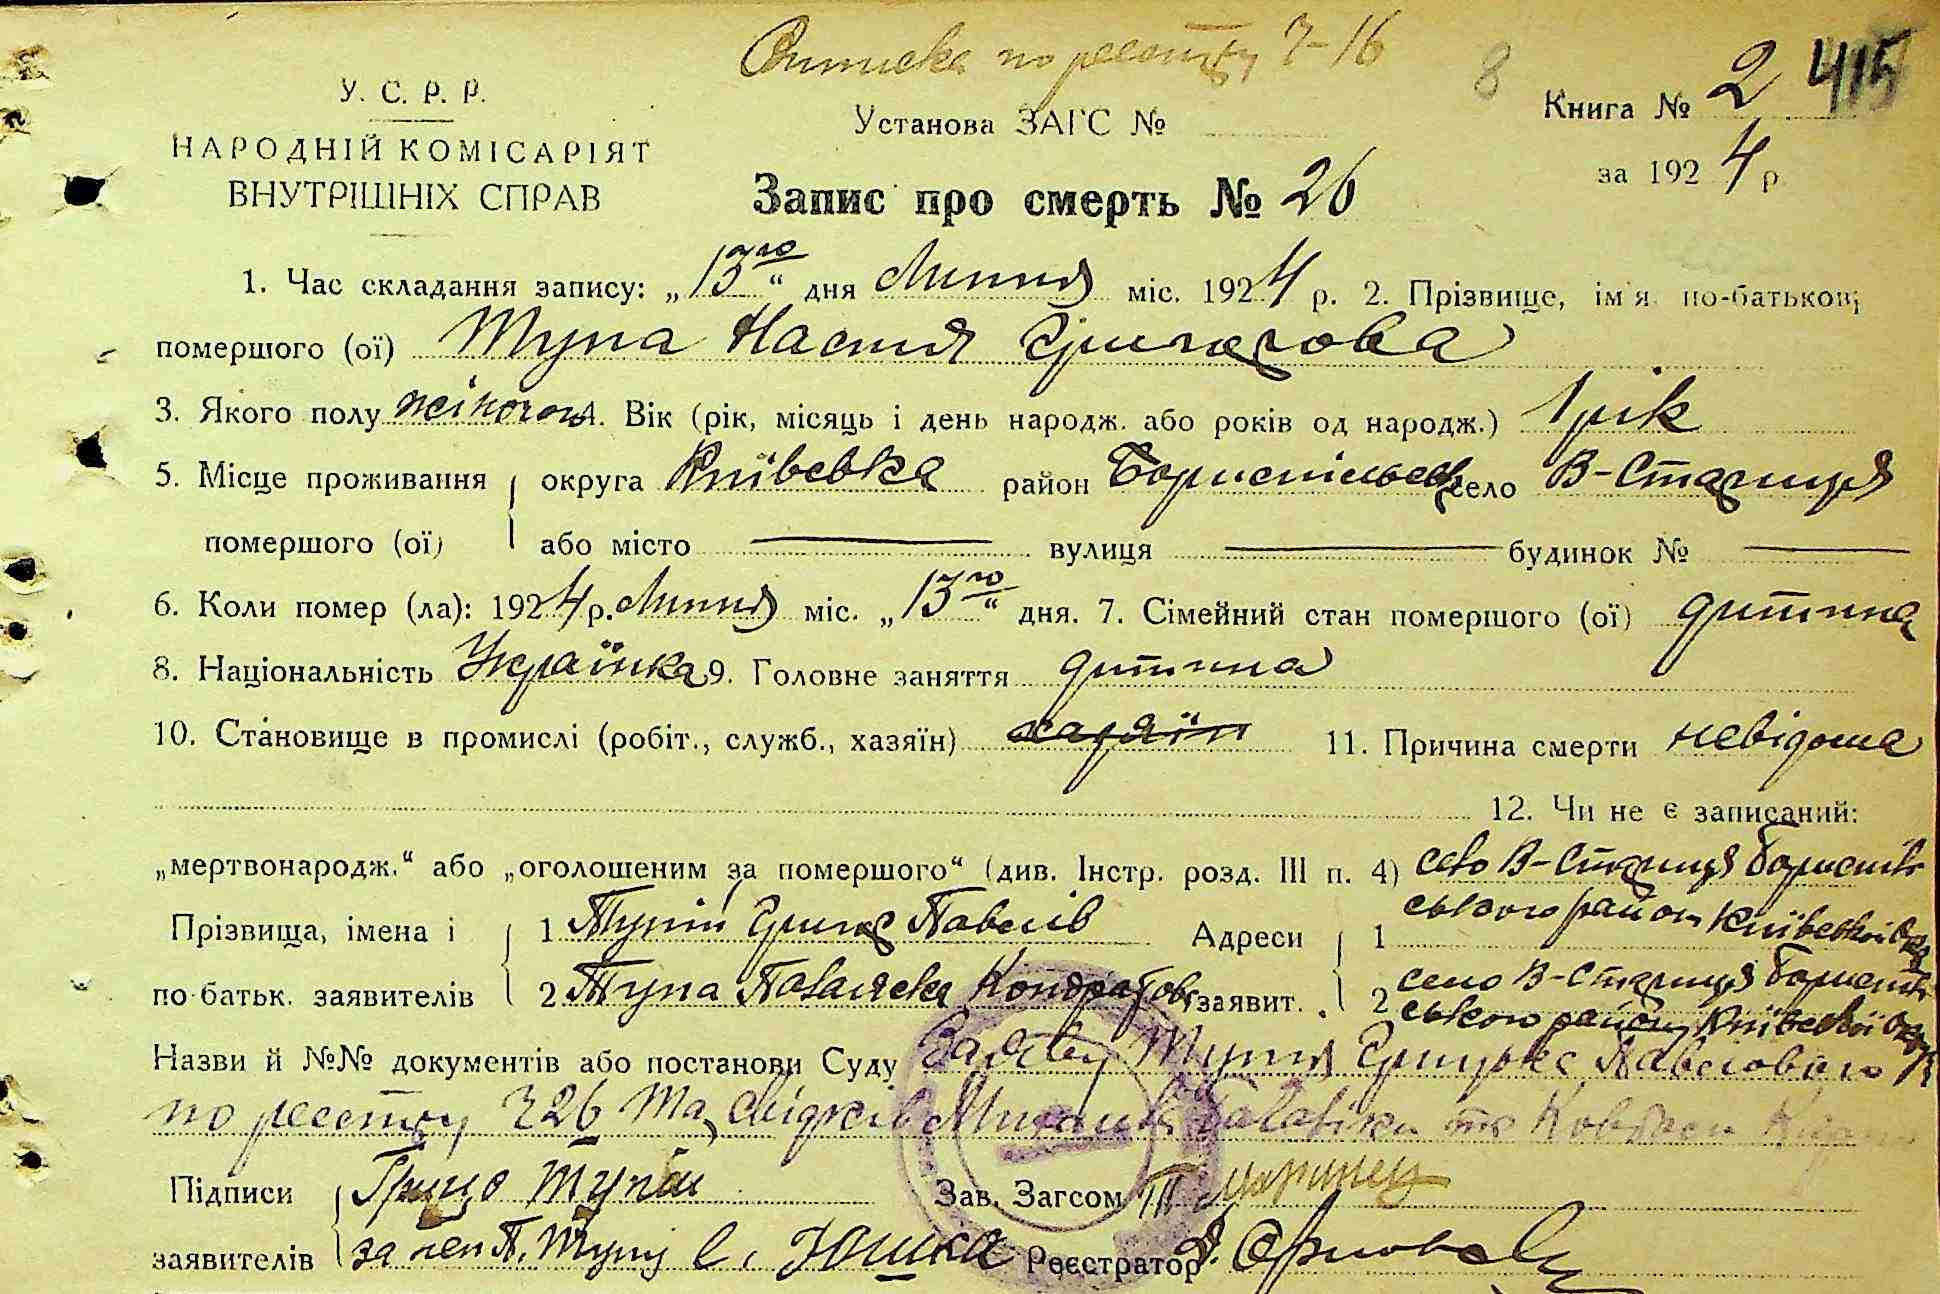 Выписка по реестру 7-16
8
415
У. С. Р. Р.
НАРОДНІЙ КОМІСАРІЯТ
ВНУТРІШНІХ СПРАВ
Установа ЗАГС №
Книга № 2
за 1924 р.
Запис про смерть № 26
1. Час складання запису: „13го“ дня Липня міс. 1924 р. 2. Прізвище, ім'я по-батькові
помершого (ої) Тупа Настя Григорова
3. Якого полу жіночого 4. Вік (рік, місяць і день народж. або років од народж.) 1 рік
5. Місце проживання округа Київська район Бориспільськ село В-Стариця
помершого (ої) або місто — вулиця — будинок № —
6. Коли помер (ла): 1924 р. Липня міс. „13го“ дня. 7. Сімейний стан помершого (ої) дитина
8. Національність Українка 9. Головне заняття дитина
10. Становище в промислі (робіт., служб., хазяїн) хазяїн 11. Причина смерти невідома
12. Чи не є записаний:
„мертвонародж.“ або „оголошеним за помершого“ (див. Інстр. розд. III п. 4) село В-Стариця Бориспіль
ського району Київської Окр
Прізвища, імена і 1 Тупій Григор Павлів Адреси 1
село В-Стариця Бориспіль
по-батьк. заявителів 2 Тупа Палажка Кондратова заявит. 2 ського району Київської Окр
Назви й №№ документів або постанови Суду Заява Тупія Грицька Павлового
по реестру 726 та свідків та Ковбаси
Підписи Грицо Тупій Зав. Загсом
заявителів за неп П. Тупу С. Юшка Реєстратор